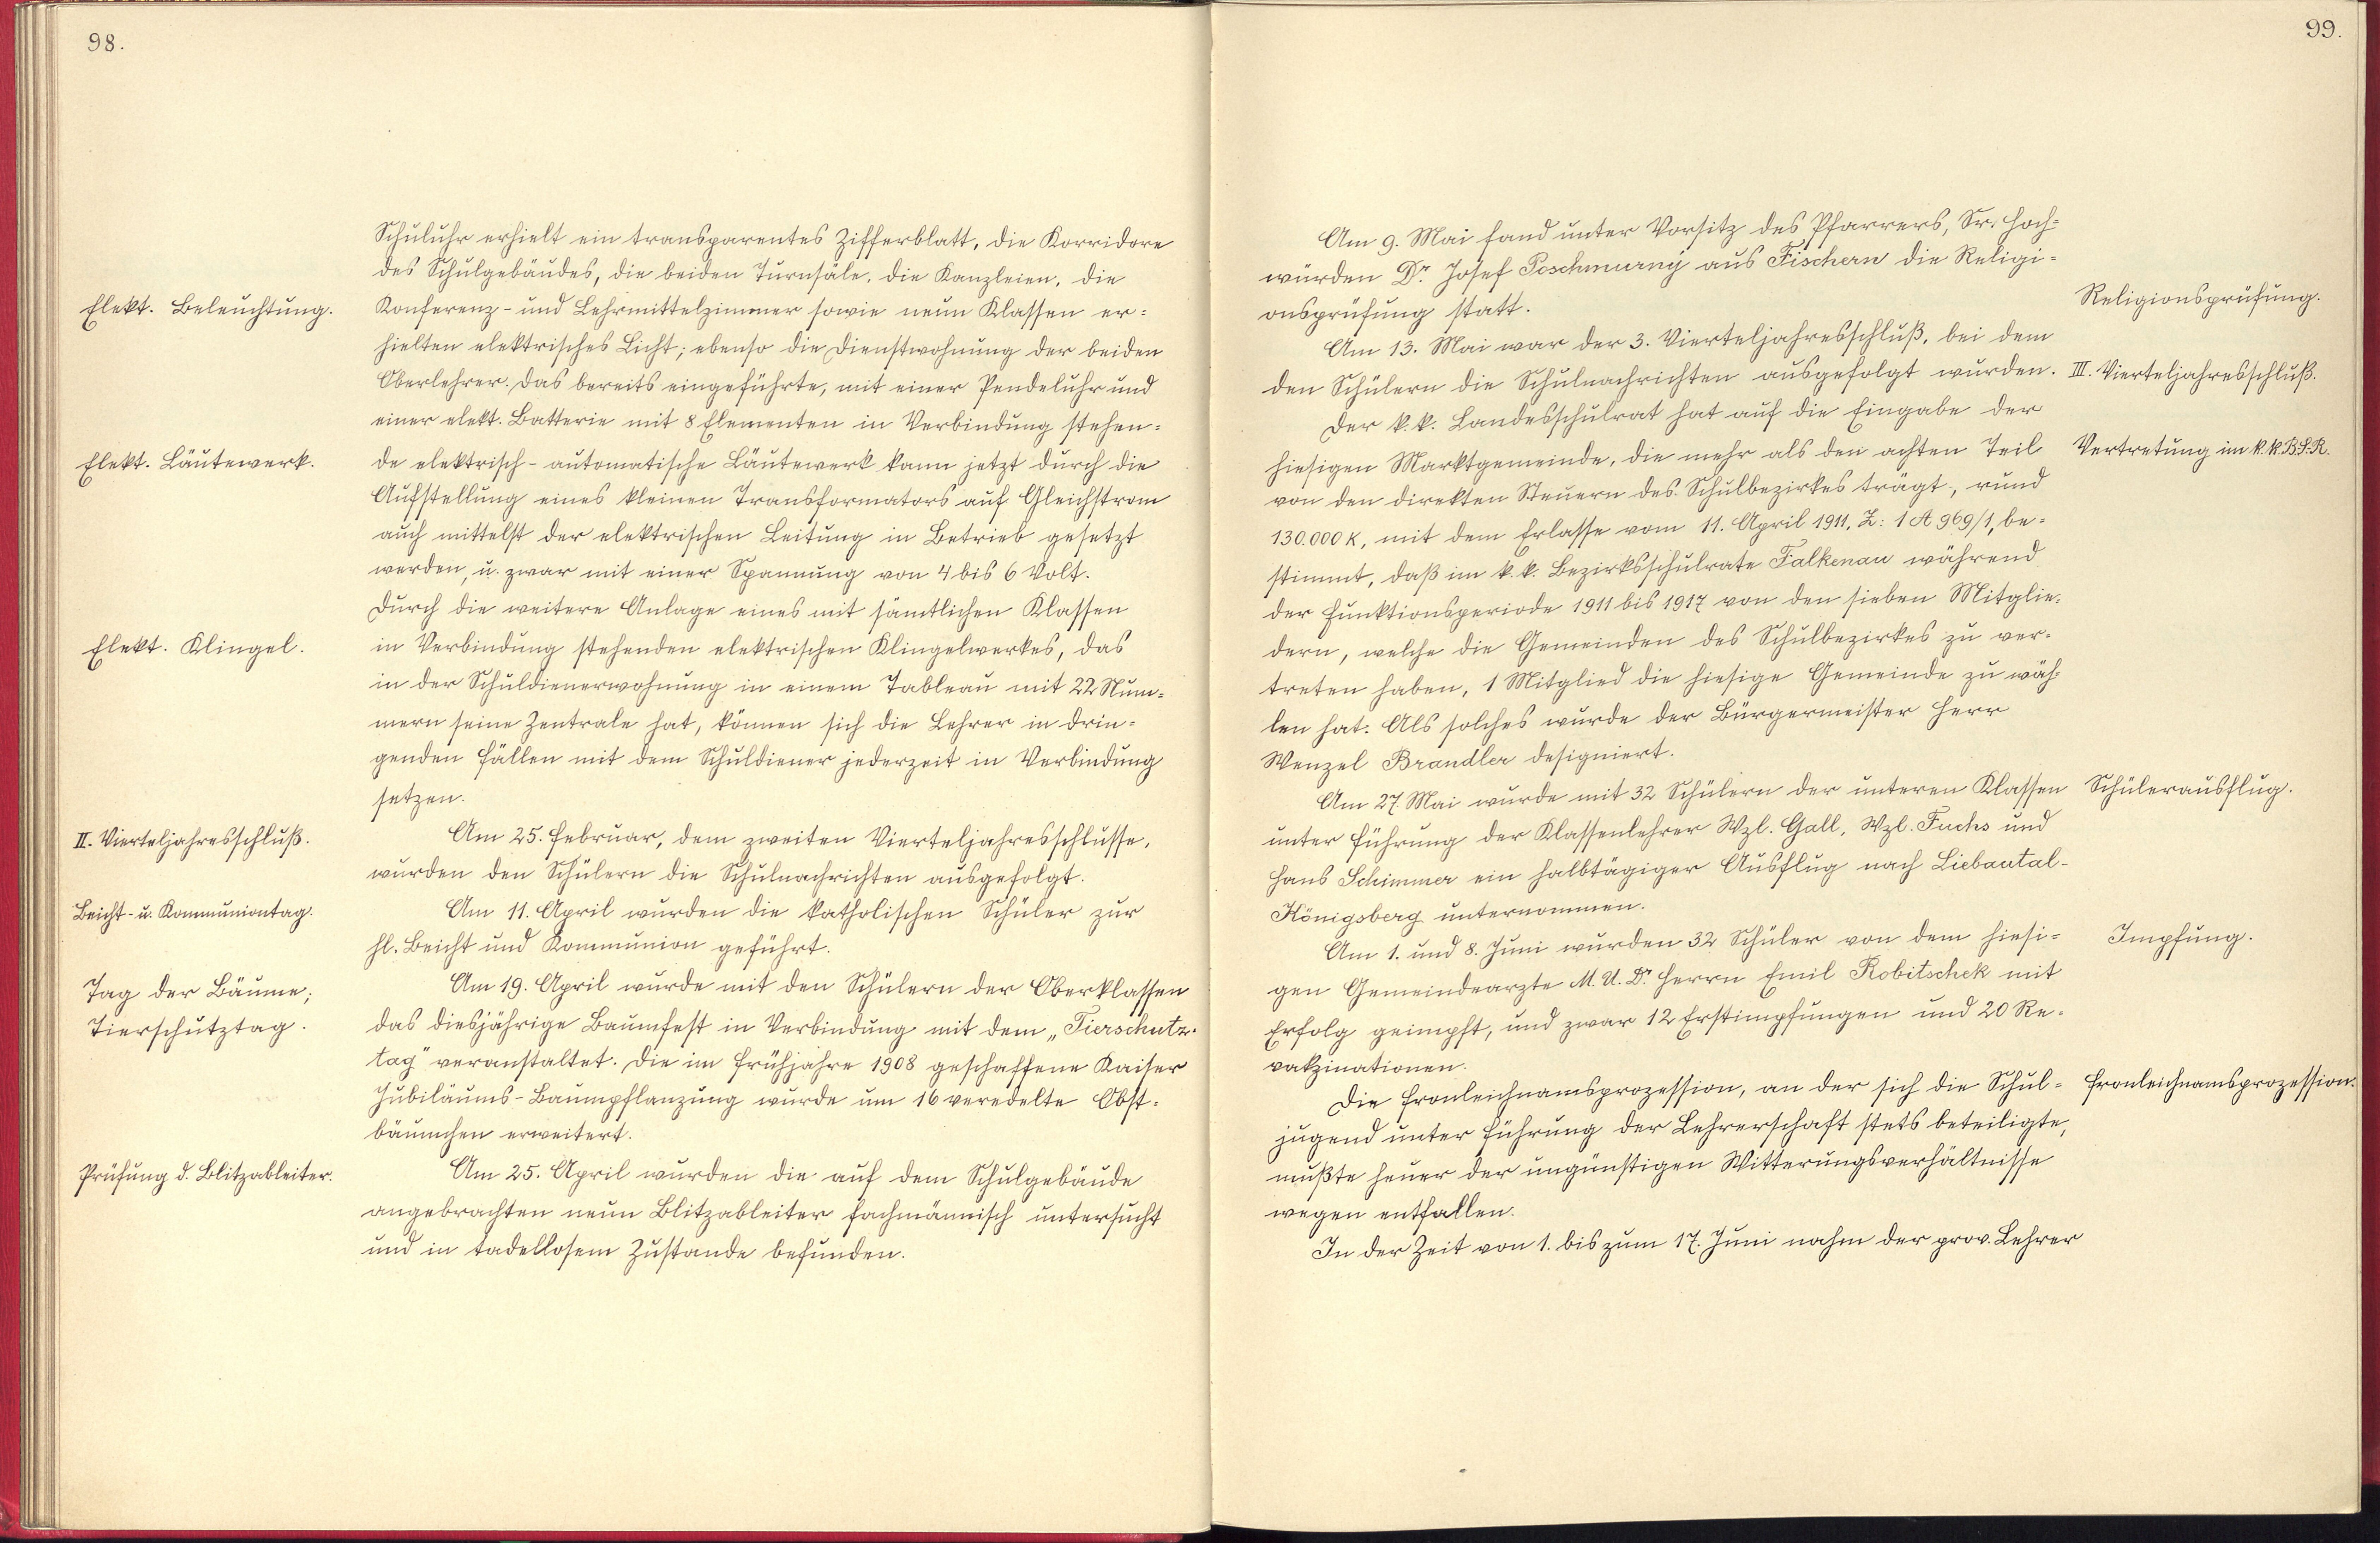 98.
Schuluhr erhielt ein transparentes Zifferblatt, die Korridore
des Schulgebäudes, die beiden Turnsäle, die Kanzleien, die
Elekt. Beleuchtung.
Konferenz- und Lehrmittelzimmer sowie neun Klassen er-
hielten elektrisches Licht; ebenso die Dienstwohnung der beiden
Oberlehrer. Das bereits eingeführte, mit einer Pendeluhr und
einer elekt. Batterie mit 8 Elementen in Verbindung stehen-
Elekt. Läutewerk.
de elektrisch-automatische Läutewerk kann jetzt durch die
Aufstellung eines kleinen Transformators auf Gleichstrom
auch mittelst der elektrischen Leitung in Betrieb gesetzt
werden, u. zwar mit einer Spannung von 4 bis 6 Volt.
Durch die weitere Anlage eines mit sämtlichen Klassen
Elekt. Klingel.
in Verbindung stehenden elektrischen Klingelwerkes, das
in der Schuldienerwohnung in einem Tableau mit 22 Num-
mern seine Zentrale hat, können sich die Lehrer in drin-
genden Fällen mit dem Schuldiener jederzeit in Verbindung
setzen.
II. Vierteljahresschluß.
Am 25. Februar, dem zweiten Vierteljahresschlusse,
wurden den Schülern die Schulnachrichten ausgefolgt.
Beicht- u. Kommuniontag.
Am 11. April wurden die katholischen Schüler zur
hl. Beicht und Kommunion geführt.
Tag der Bäume;
Am 19. April wurde mit den Schülern der Oberklassen
Tierschutztag.
das diesjährige Baumfest in Verbindung mit dem „Tierschutz-
tag" veranstaltet. Die im Frühjahre 1908 geschaffene Kaiser
Jubiläums-Baumpflanzung wurde um 16 veredelte Obst-
bäumchen erweitert.
Prüfung d. Blitzableiter.
Am 25. April wurden die auf dem Schulgebäude
angebrachten neun Blitzableiter fachmännisch untersucht
und in tadellosem Zustande befunden.
99.
Am 9. Mai fand unter Vorsitz des Pfarrers, Sr. Hoch-
würden Dr. Josef Poschmurný aus Fischern die Religi-
onsprüfung statt.
Religionsprüfung.
Am 13. Mai war der 3. Vierteljahresschluß, bei dem
den Schülern die Schulnachrichten ausgefolgt wurden.
III. Vierteljahresschluß.
Der k. k. Landesschulrat hat auf die Eingabe der
hiesigen Marktgemeinde, die mehr als den achten Teil
Vertretung im k. k. B.S.R.
von den direkten Steuern des Schulbezirkes trägt, rund
130.000 K, mit dem Erlasse vom 11. April 1911, Z: 1 A 969/1, be-
stimmt, daß im k. k. Bezirksschulrate Falkenau während
der Funktionsperiode 1911 bis 1917 von den sieben Mitglie-
dern, welche die Gemeinden des Schulbezirkes zu ver-
treten haben, 1 Mitglied die hiesige Gemeinde zu wäh-
len hat. Als solches wurde der Bürgermeister Herr
Wenzel Brandler designiert.
Am 27. Mai wurde mit 32 Schülern der unteren Klassen
Schülerausflug.
unter Führung der Klassenlehrer Wzl. Gall, Wzl. Fuchs und
Hans Schimmer ein halbtägiger Ausflug nach Liebautal-
Königsberg unternommen.
Am 1. und 8. Juni wurden 32 Schüler von dem hiesi-
Impfung.
gen Gemeindearzte M. U. Dr. Herrn Emil Robitschek mit
Erfolg geimpft, und zwar 12 Erstimpfungen und 20 Re-
vakzinationen.
Die Fronleichnamsprozession, an der sich die Schul-
Fronleichnamsprozession.
jugend unter Führung der Lehrerschaft stets beteiligte,
mußte heuer der ungünstigen Witterungsverhältnisse
wegen entfallen.
In der Zeit von 1. bis zum 17. Juni nahm der prov. Lehrer